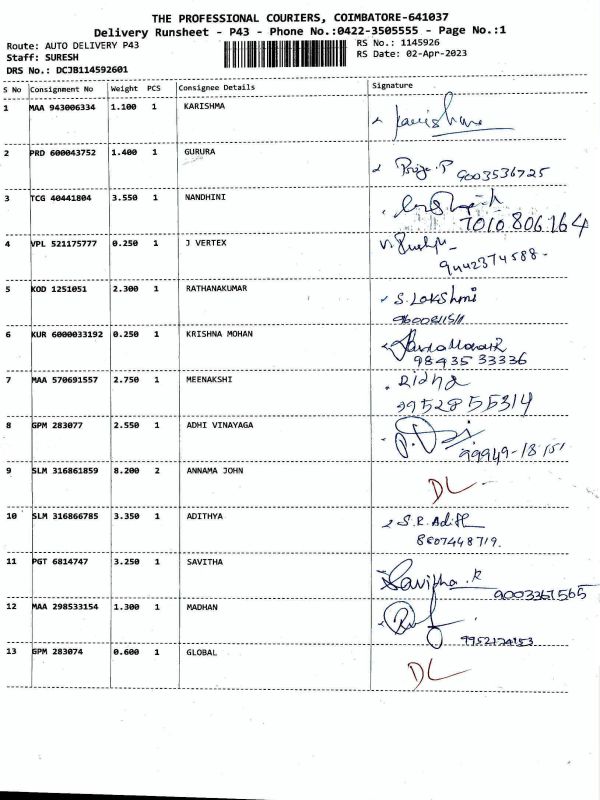 THE PROFESSIONAL COURIERS, COIMBATORE-641037
Delivery Runsheet - P43 - Phone No.:0422-3505555 - Page No.:1
Route: AUTO DELIVERY P43
RS No.: 1145926
Staff: SURESH
RS Date: 02-Apr-2023
DRS No.: DCJB114592601
S No Consignment No Weight PCS Consignee Details Signature
1 MAA 943006334 1.100 1 KARISHMA
2 PRD 600043752 1.400 1 GURURA
9003536725
3 TCG 40441804 3.550 1 NANDHINI
7010 806 164
4 VPL 521175777 0.250 1 J VERTEX
9442374588-
5 KOD 1251051 2.300 1 RATHANAKUMAR S. Lakshmi
6 KUR 6000033192 0.250 1 KRISHNA MOHAN
98435 33336
7 MAA 570691557 2.750 1 MEENAKSHI Ridha
99528 55314
8 GPM 283077 2.550 1 ADHI VINAYAGA
99949-18151
9 SLM 316861859 8.200 2 ANNAMA JOHN DL
10 SLM 316866785 3.350 1 ADITHYA S.R. Adith
8607448719.
11 PGT 6814747 3.250 1 SAVITHA Savitha. R
9003367565
12 MAA 298533154 1.300 1 MADHAN
13 GPM 283074 0.600 1 GLOBAL DL